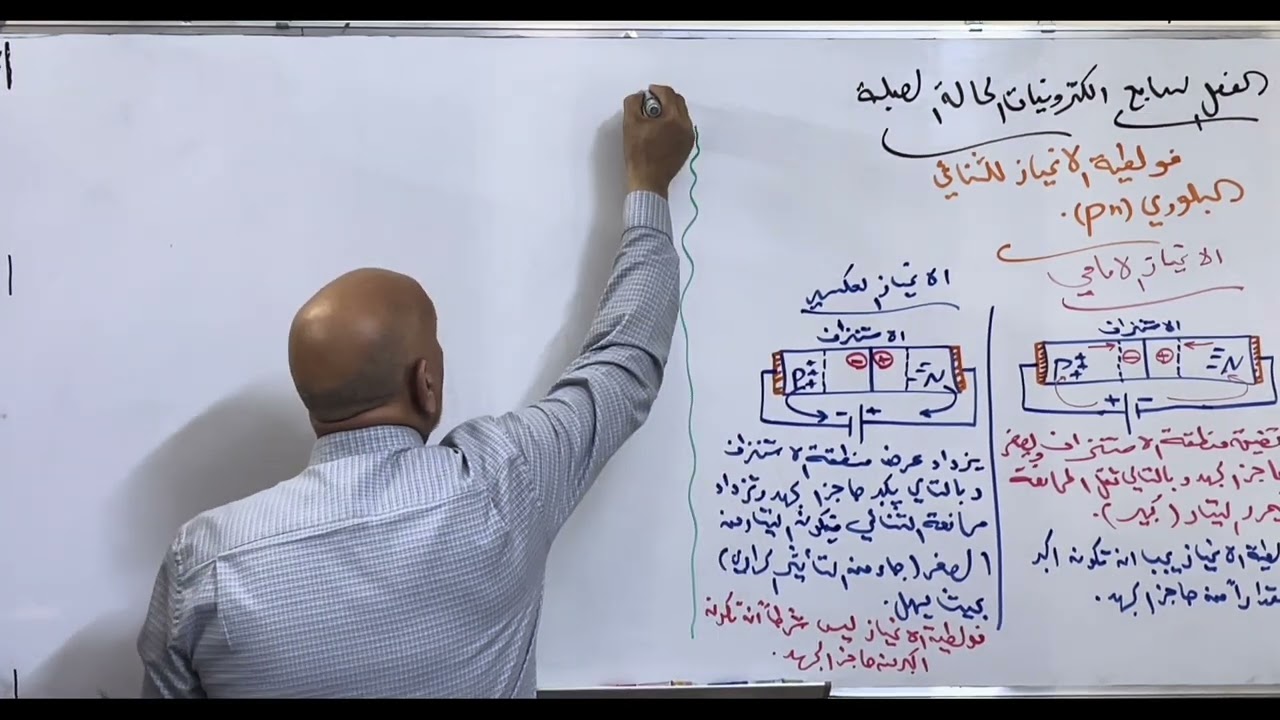 الفصل السابع الكترونيات الحالة الصلبة
فولطية الانحياز للثنائي
البلوري (pn).
الانحياز الامامي
الاستنزاف
P
N
+ -
منطقة الاستنزاف ويصغر
حاجز الجهد وبالتالي تقل الممانعة
التيار (كبير).
الانحياز يجب ان تكون اكبر
من حاجز الجهد.
الانحياز العكسي
الاستنزاف
P
- +
N
- +
يزداد عرض منطقة الاستنزاف
وبالتالي يكبر حاجز الجهد وتزداد
ممانعة الثنائي فيكون التيار من
الصفر (جاء من التأثير الحراري)
بحيث يهمل.
فولطية الانحياز ليس شرطاً ان تكون
اكبر من حاجز الجهد.